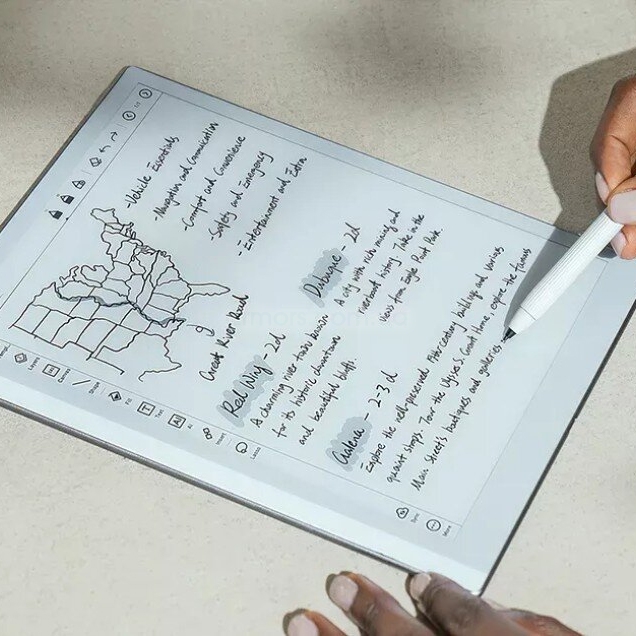 -Vehicle Essentials
-Navigation and Communication
-Comfort and Convenience
-Safety and Emergency
-Entertainment and Extra
Great River Road
Red Wing - 2d
A charming river town known
for its historic downtown
and beautiful bluffs.
Dubuque - 2d
A city with rich mining and
riverboat history. Take in the
views from Eagle Point Park
Galena - 2-3 d
Explore the well-preserved 19th-century buildings and various
quaint shops. Tour the Ulysses S. Grant Home, explore the famous
Main Street's boutiques and galleries
Layers
Shape
Fill
Text
AI
Insert
Lasso
Sync
More